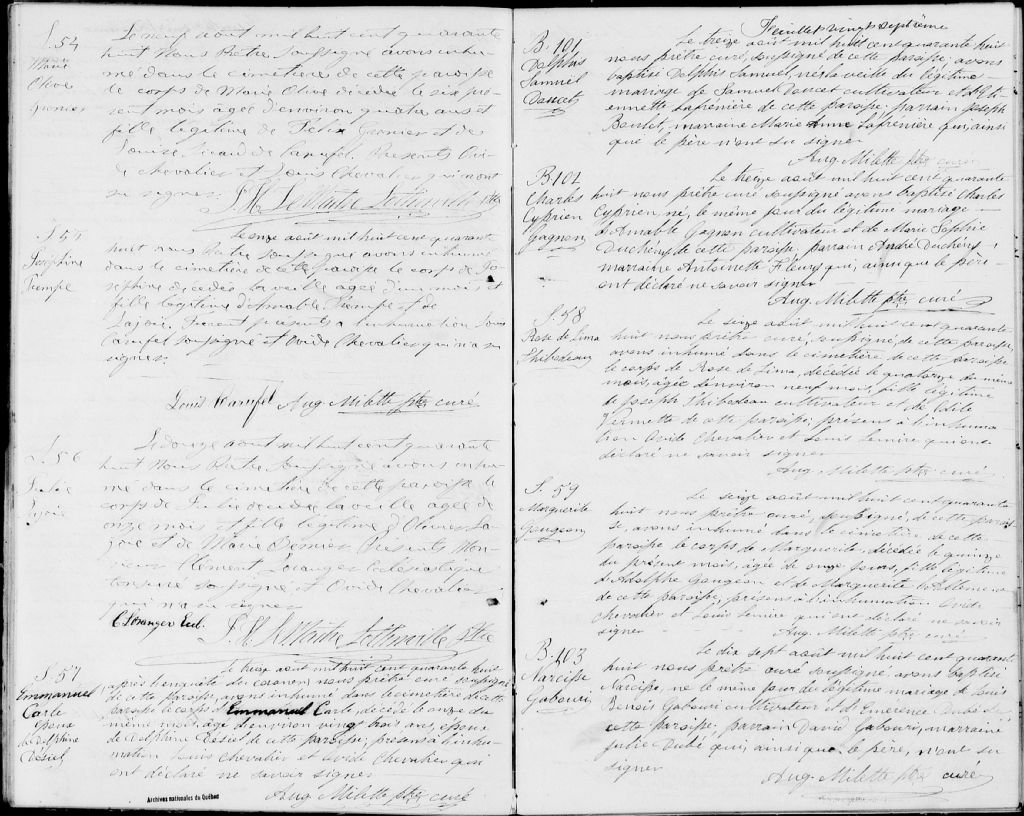 S. 54
Marie
Olive
Grenier
Le neuf août mil huit cent quarante
huit Nous Prêtre soussigné avons inhu
mé dans le cimetière de cette paroisse
le corps de Marie Olive décédée le six pré
sent mois agée d'environ quatre ans et
fille légitime de Felix Grenier et de
Louise Sicard de Carufel. Présents Ovi
de Chevalier et Louis Chevalier qui n'ont
su signer.
S. 55
Josephine
Trempe
Le onze août mil huit cent quarante
huit nous Prêtre soussigné avons inhumé
dans le cimetière de cette paroisse le corps de Jo
sephine décédée la veille agée d'un mois et
fille légitime d'Amable Trempe et de
Lajoie. Furent présents a l'inhumation Louis
Carufel soussigné et Ovide Chevalier qui n'a su
signer.
Louis Carufel Aug. Milette ptre curé
S. 56
Julie
Lajoie
Le douze août mil huit cent quarante
huit Nous Prêtre soussigné avons inhu
mé dans le cimetière de cette paroisse le
corps de Julie décédée la veille agée de
onze mois et fille légitime d'Olivier La
joie et de Marie Bernier Présents Mon
sieur Clément Loranger Ecclésiastique
tonsuré soussigné et Ovide Chevalier
qui n'a su signer
C. Loranger Eccl.
S. 57
Emmanuel
Carle
époux
de Delphine
Désiel
Le treize août mil huit cent quarante huit
après l'enquête du coroner, nous prêtre curé soussigné
de cette paroisse, avons inhumé dans le cimetière de cette
paroisse le corps d'Emmanuel Carle, décédé le onze du
même mois, agé d'environ vingt trois ans, époux
de Delphine Désiel de cette paroisse; présens à l'inhu-
mation Louis Chevalier et Ovide Chevalier qui
ont déclaré ne savoir signer
Aug. Milette ptre curé
Archives nationales du Québec
Feuillet vingt septième
B. 101
Dolphis
Samuel
Doucet
Le treize août mil huit cent quarante huit
nous prêtre curé, soussigné de cette paroisse, avons
baptisé Dolphis Samuel, né la veille du légitime
mariage de Samuel Doucet cultivateur et d'Eti-
ennette Lafrenière de cette paroisse; parrain Joseph
Boulet, marraine Marie Anne Lafrenière qui, ainsi
que le père n'ont su signer
Aug. Milette ptre curé
B 102
Charles
Cyprien
Gagnon
Le treize août mil huit cent quarante
huit nous prêtre curé soussigné avons baptisé Charles
Cyprien né, le même jour du légitime mariage
d'Amable Gagnon cultivateur et de Marie Sophie
Ducheny de cette paroisse. parrain André Ducheny,
marraine Antoinette Fleury qui, ainsi que le père
ont déclaré ne savoir signer
Aug. Milette ptre curé
S. 58
Rose de Lima
Thibodeau
Le seize août mil huit cent quarante
huit nous prêtre curé, soussigné, de cette paroisse,
avons inhumé dans le cimetière de cette paroisse
le corps de Rose de Lima, décédée le quatorze du même
mois, agée d'environ neuf mois, fille légitime
de Joseph Thibodeau cultivateur et de
Vermette de cette paroisse; présens à l'inhuma-
tion Ovide Chevalier et Louis Lemire qui ont
déclaré ne savoir signer
Aug. Milette ptre curé
S. 59
Marguerite
Gougeon
Le seize août mil huit cent quarante
huit nous prêtre curé, soussigné, de cette parois-
se, avons inhumé dans le cimetière de cette
paroisse le corps de Marguerite, décédée le quinze
du présent mois, agée de onze jours, fille légitime
d'Adolphe Gougeon et de Marguerite
de cette paroisse; présens à l'inhumation Ovide
Chevalier et Louis Lemire qui ont déclaré ne savoir
signer
Aug. Milette ptre curé
B. 103
Narcisse
Gabouri
Le dix sept août mil huit cent quarante
huit nous prêtre curé soussigné avons baptisé
Narcisse, né le même jour du légitime mariage de Louis
Benoîs Gabouri cultivateur et d'Emérence
cette paroisse; parrain David Gabouri, marraine
Julie Dubé qui, ainsi que le père, n'ont su
signer
Aug. Milette ptre curé